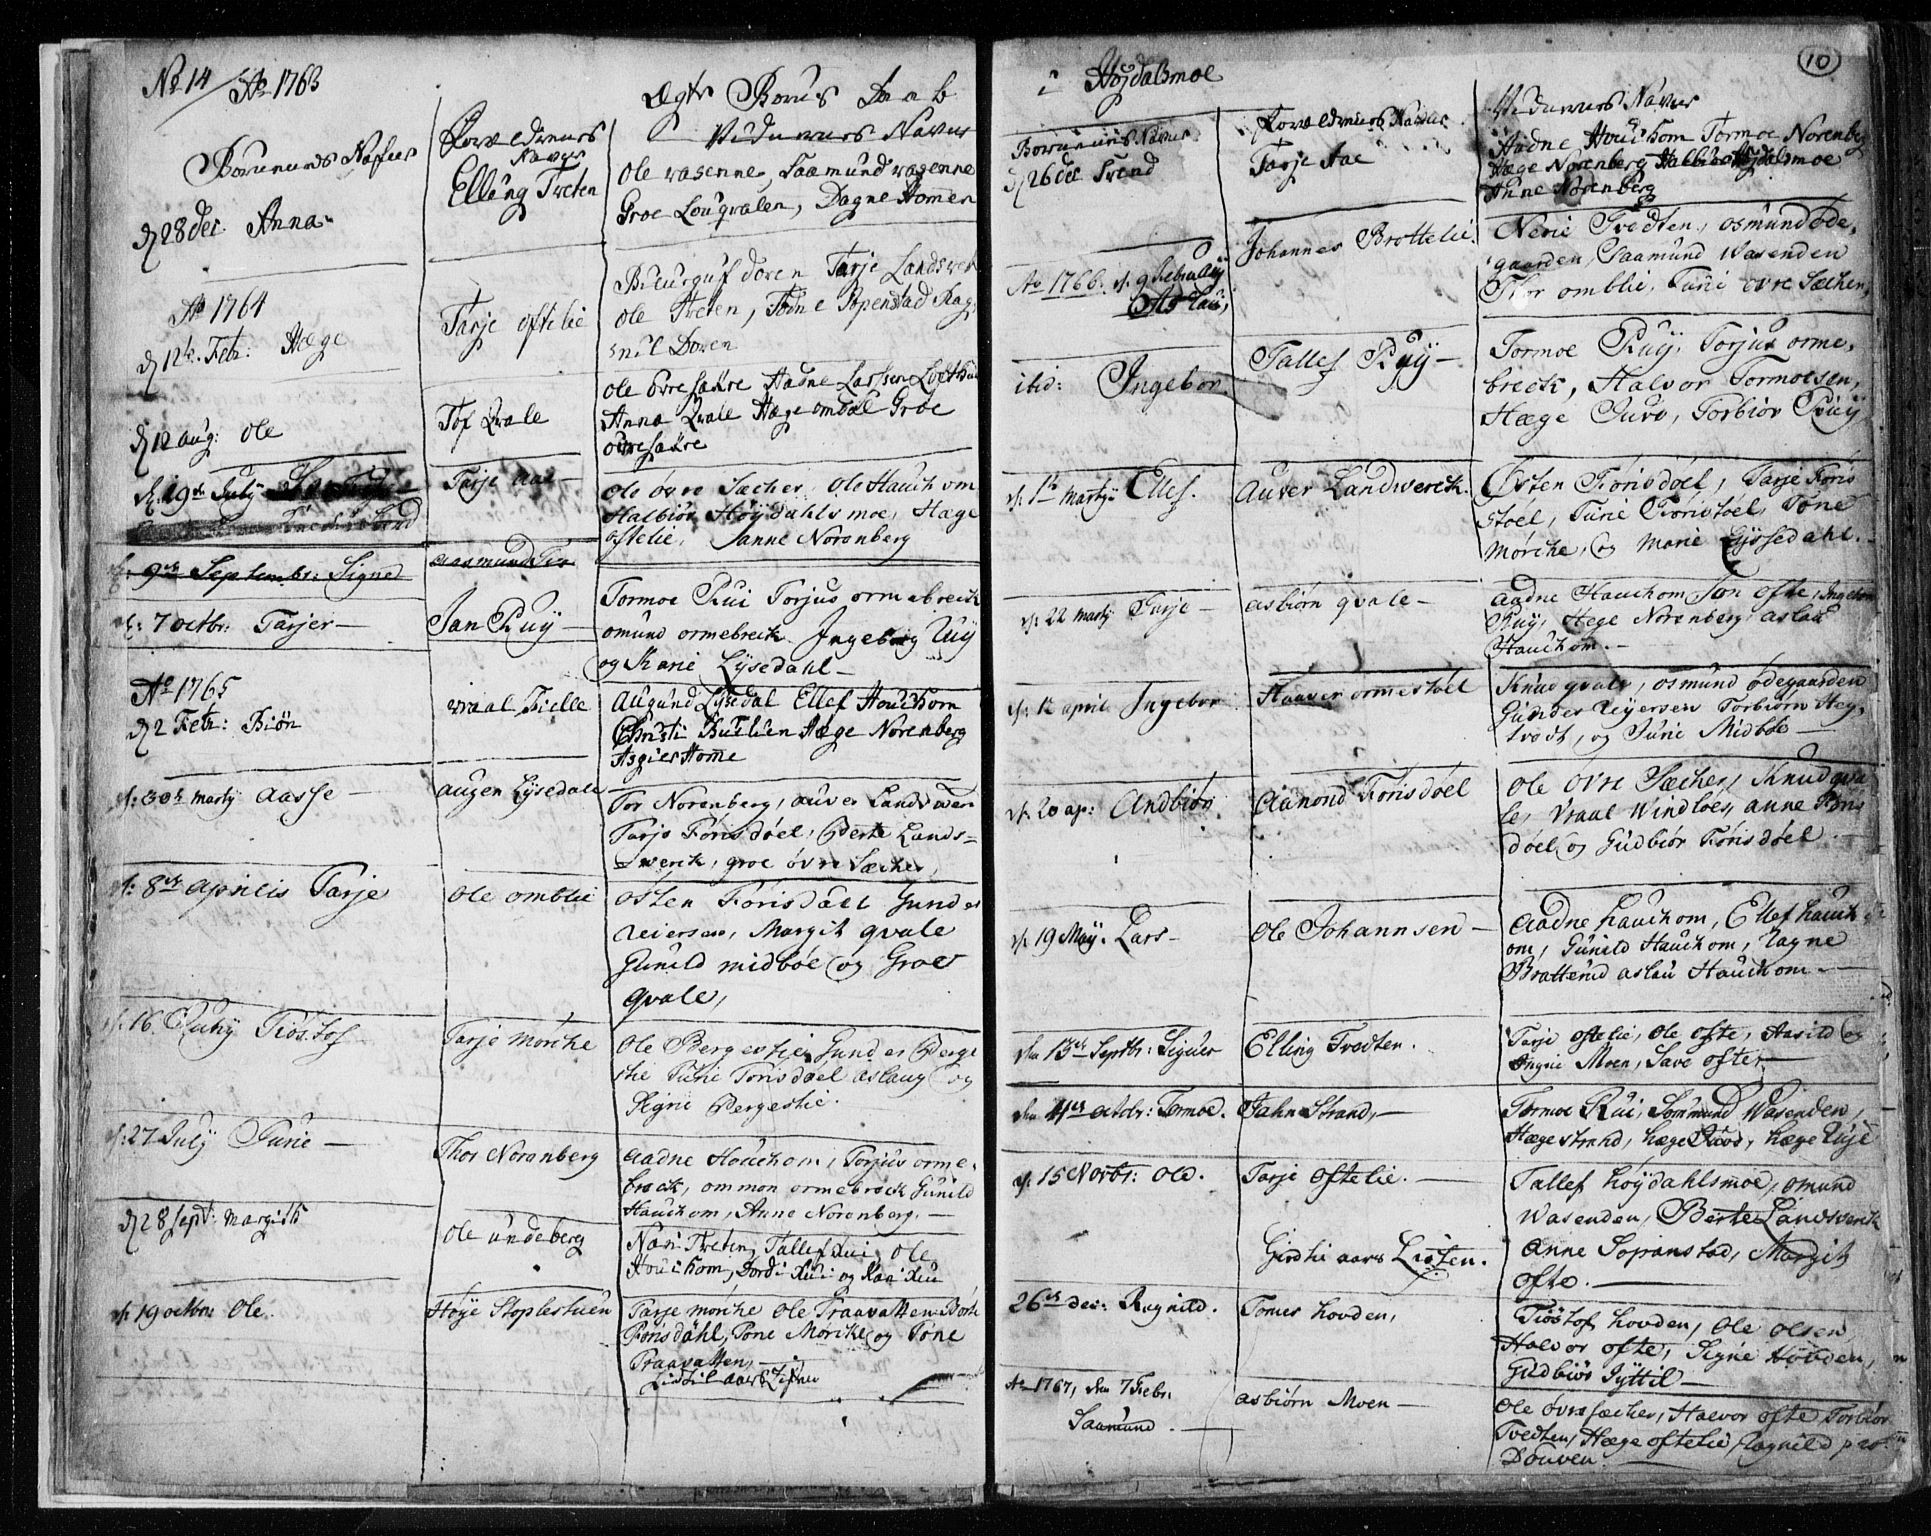 No 14 / Ao 1763
Ægte Børns Daab
Børnenes Nafner
Forældrenes
Navne
Vidnernes Navne
d 28 Dec. Anna
Elling Treten
Ole vasenne, Saamund vasenne
Groe Louqvalen, Dagne Homen
Ao 1764
d 12te. Febr: Hæge
Tarje oftelie
doren Tarje Landsverk
Ole Treten, Tone Sopenstad Rag:
nil Doren
d 12 aug: Ole
Tof Qvale
Ole øvre sæire Aadne Larssen
Anna Qvale Hæge omdal Groe
øvresæire
d. 19de July
Tarje Aae
Ole øvre Sæcher, Ole Hauchom
Halbiør Høydahlsmoe, Hæge
oftelie, Janne Norenberg
d: 9de Septembr: Signe
Aasmund
d: 7 octbr: Tarjer
Jan Ruy
Tormoe Rui Torjus ormebreck
omund ormebreck Ingeborg Ruy
og Marie Lysedahl
Ao 1765
d 2 Febr: Biøn
vraal Fielle
Augund Lysedal Ellef Houchom
Christi Hæge Norenberg
Asgier Home
d: 30te marty Aasse
augen Lysedall
Tor Norenberg, auver Landsver
Tarje Førisdøel, Berte Lands=
werck, groe øvre Sæcher
d: 8de aprilis Tarje
Ole omblie
østen Førisdøel Gunder
Reiersen, Margit qvale
Gunild midbøe og Groe
qvale,
d: 16 Juny Tiøstof
Tarje Mørche
Ole Bergestie Gunder Berge
stie Turie Førisdøel aslaug og
Signe Bergestie.
d: 27 July Turie
Thor Norenberg
Aadne Houchom, Torjus orme,
breck, ommon ormebreck Gunild
Hauchom, Anne Norenberg.
d 28 sept: Margith
Ole undeberg
Næri Treten, Tallef Rui, Ole
Houchom, Dordi Rui og Kari Rui
d: 19 octbr: Ole.
Høye Stoplestuen
Tarje mørche Ole Traavatten Børte
Førisdahl, Tone Mørche og Tone
Traavatten,
i Høydalsmoe
10
Børnenes Navne
Forældrenes Navne
Vidnernes Navne
d 26 Dec Svend
Tarje Aae
Aadne Houchom Tormoe Norenberg
Hæge Norenberg Halbiør Høydalsmoe
Anne Norenberg
Ao 1766. d. 9 Februarij
Aslau,
Johannes Brottelie
Nerie Tvedten, osmund øde,
gaarden, Saamund Wasenden
Thor omblie, Turie øvre Sæcher,
ibid: Ingebor
Tallef Ruy
Tormoe Ruy, Torjus orme,
breck, Halvor Tormoesen,
Hæge Juve, Torbiør Ruy
d: 1te marty Ellef.
Auver Landwerck.
Østen Førisdøel, Tarje Føris
døel, Turie Førisdøel, Tone
Mørche, og Marie Lysedahl.
d: 22 marty Tarje
asbiørn qvale
aadne Hauchom Jon ofte, Ingebor
Ruy, Hege Norenberg, aslau
Hauchom.
d: 12 april Ingebor
Haaver ormestøel
Knud qvale, osmund ødegaarden
Gunder Reyersen Torbiørn Hey,
tvedt, og Turie Midbøe
d: 20 ap: Andbiør
Aamond Førisdøel
Ole øvre Sæcher, Knud qva
le, Vraal Windløes, anne Føris
døel og Gudbiør Førisdøel.
d: 19 May. Lars
Ole Johannsen
Aadne hauchom, Ellef hauch
om, Gunild Hauchom, Ragne
Brattelid aslau Hauchom.
den 13de Septbr: Signe
Elling Tvedten.
Tarje oftelie, Ole ofte, Aasild og
Ingrie Moen, Save ofte,
den 4de octobr: Tormoe.
Jahn Strand,
Tormoe Rui, Sommund Wasenden,
Hæge strand, hæge Juve, hæge Ruje
d: 15 Novbr: Ole.
Tarje oftelie.
Tallef høydahlsmoe, omund
Wasenden, Berte Landsverck
Anne Sopanstad, Margit
ofte.
26de dec: Ragnild.
Tomes hovden,
Tiøstof hovden, Ole Olsen,
Halvor ofte, Signe Høvden,
Gudbiør
Ao 1767, den 7 Febr.
Saamund.
asbiørn Moen
Ole øvre sæcher, Halvor ofte Torbiør
Tvedten, Hæge oftelie, Ragnild
Douven.